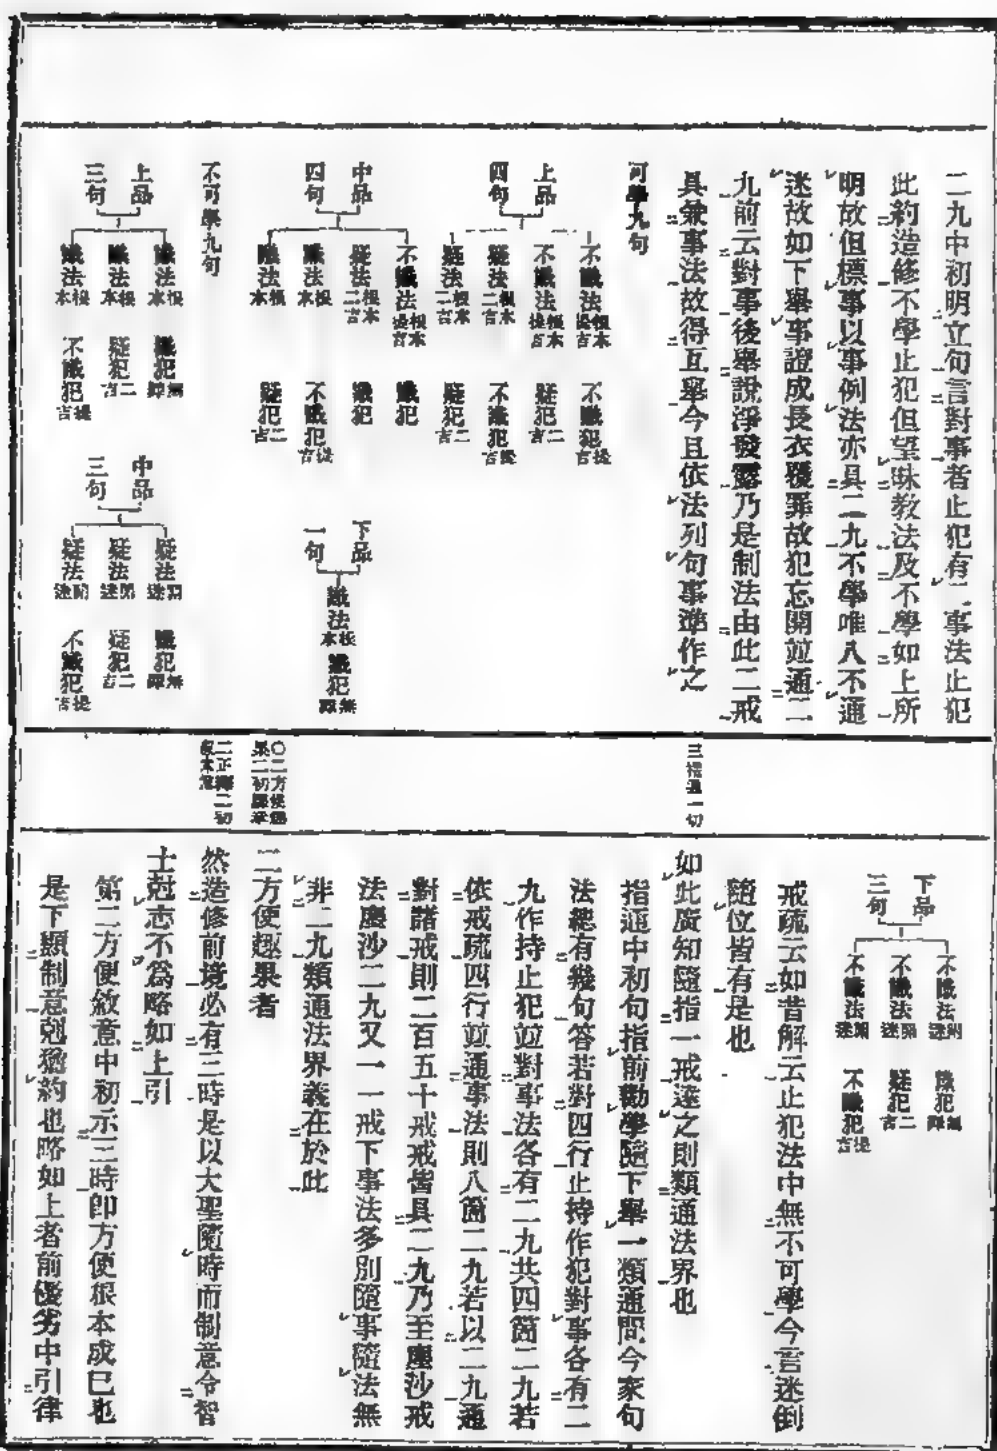 二九中初明立句言對事者止犯有二事法止犯
此約造修不學止犯但望昧教法及不學如上所
明故但標事以事例法亦具二九不學唯八不通
迷故如下舉事證成長衣覆罪故犯忘開並通二
九前云對事後舉說淨發露乃是制法由此二戒
具兼事法故得互舉今且依法列句事準作之
可學九句
上品四句
不識法根本提吉 不識犯提吉
不識法根本提吉 疑犯二吉
疑法根本二吉 不識犯提吉
疑法根本二吉 疑犯二吉
中品四句
不識法根本提吉 識犯
疑法根本二吉 識犯
識法根本 不識犯提吉
識法根本 疑犯二吉
下品一句
識法根本 識犯無罪
不可學九句
上品三句
識法根本 識犯無罪
識法根本 疑犯二吉
識法根本 不識犯提吉
中品三句
疑法開迷 識犯無罪
疑法開迷 疑犯二吉
疑法開迷 不識犯提吉
下品三句
不識法開迷 識犯無罪
不識法開迷 疑犯二吉
不識法開迷 不識犯提吉
戒疏云如昔解云止犯法中無不可學今言迷倒
隨位皆有是也
三指通一切
如此廣知隨指一戒達之則類通法界也
指通中初句指前勸學隨下舉一類通問今家句
法總有幾句答若對四行止持作犯對事各有二
九作持止犯並對事法各有二九共四箇二九若
依戒疏四行並通事法則八箇二九若以二九通
對諸戒則二百五十戒戒皆具二九乃至塵沙戒
法塵沙二九又一一戒下事法多別隨事隨法無
非二九類通法界義在於此
〇二方便趣果二初標章
二方便趣果者
二正釋二初敘本意
然造修前境必有三時是以大聖隨時而制意令智
士剋志不為略如上引
第二方便敘意中初示三時即方便根本成已也
是下顯制意剋猶約也略如上者前優劣中引律